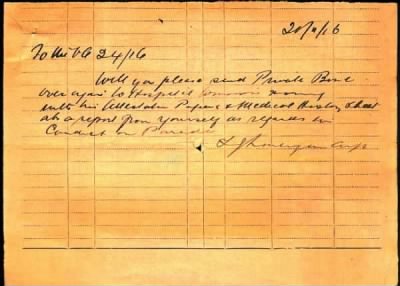 20/11/16
To the O/C 24/16
Will you please send Private Bond
over again to Hospital tomorrow morning
with his Attestation Papers & Medical History Sheet
also a report from yourself as regards his
Conduct on Parade